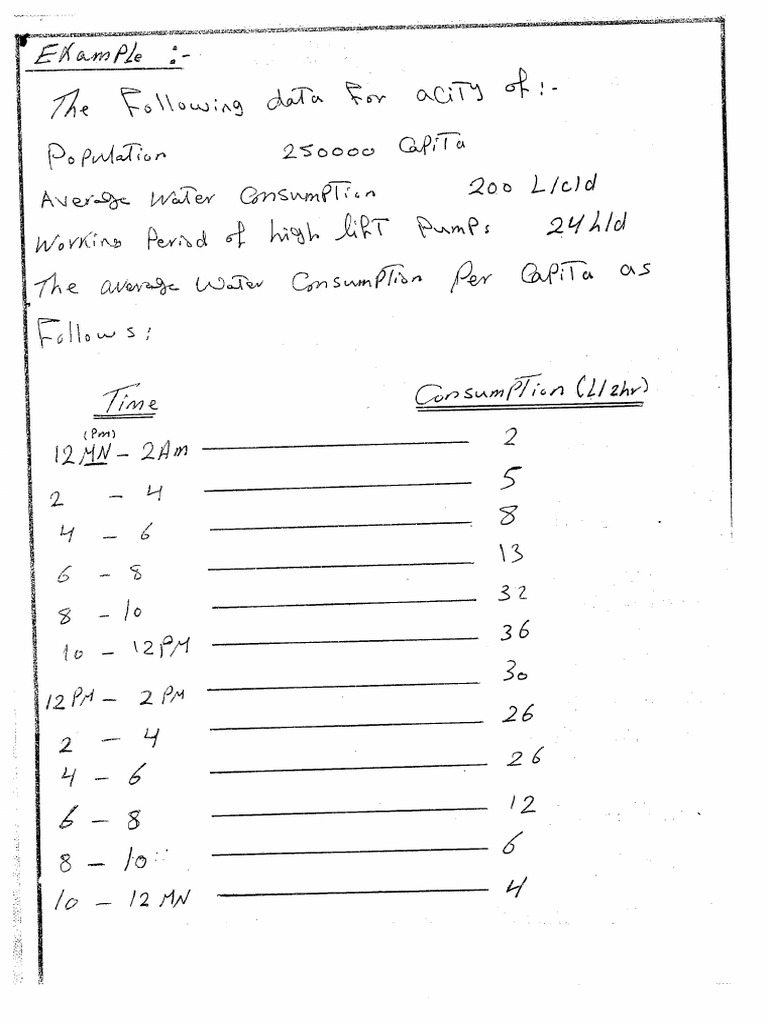 Example :-
The Following data For acity of:-
Population 250000 Capita
Average Water Consumption 200 L/c/d
Working Period of high lift Pumps 24 h/d
The average Water Consumption Per Capita as
Follows:
Time Consumption (L/2hr)
(Pm)
12 MN - 2 Am 2
2 - 4 5
4 - 6 8
6 - 8 13
8 - 10 32
10 - 12 PM 36
12 PM - 2 PM 30
2 - 4 26
4 - 6 26
6 - 8 12
8 - 10 6
10 - 12 MN 4